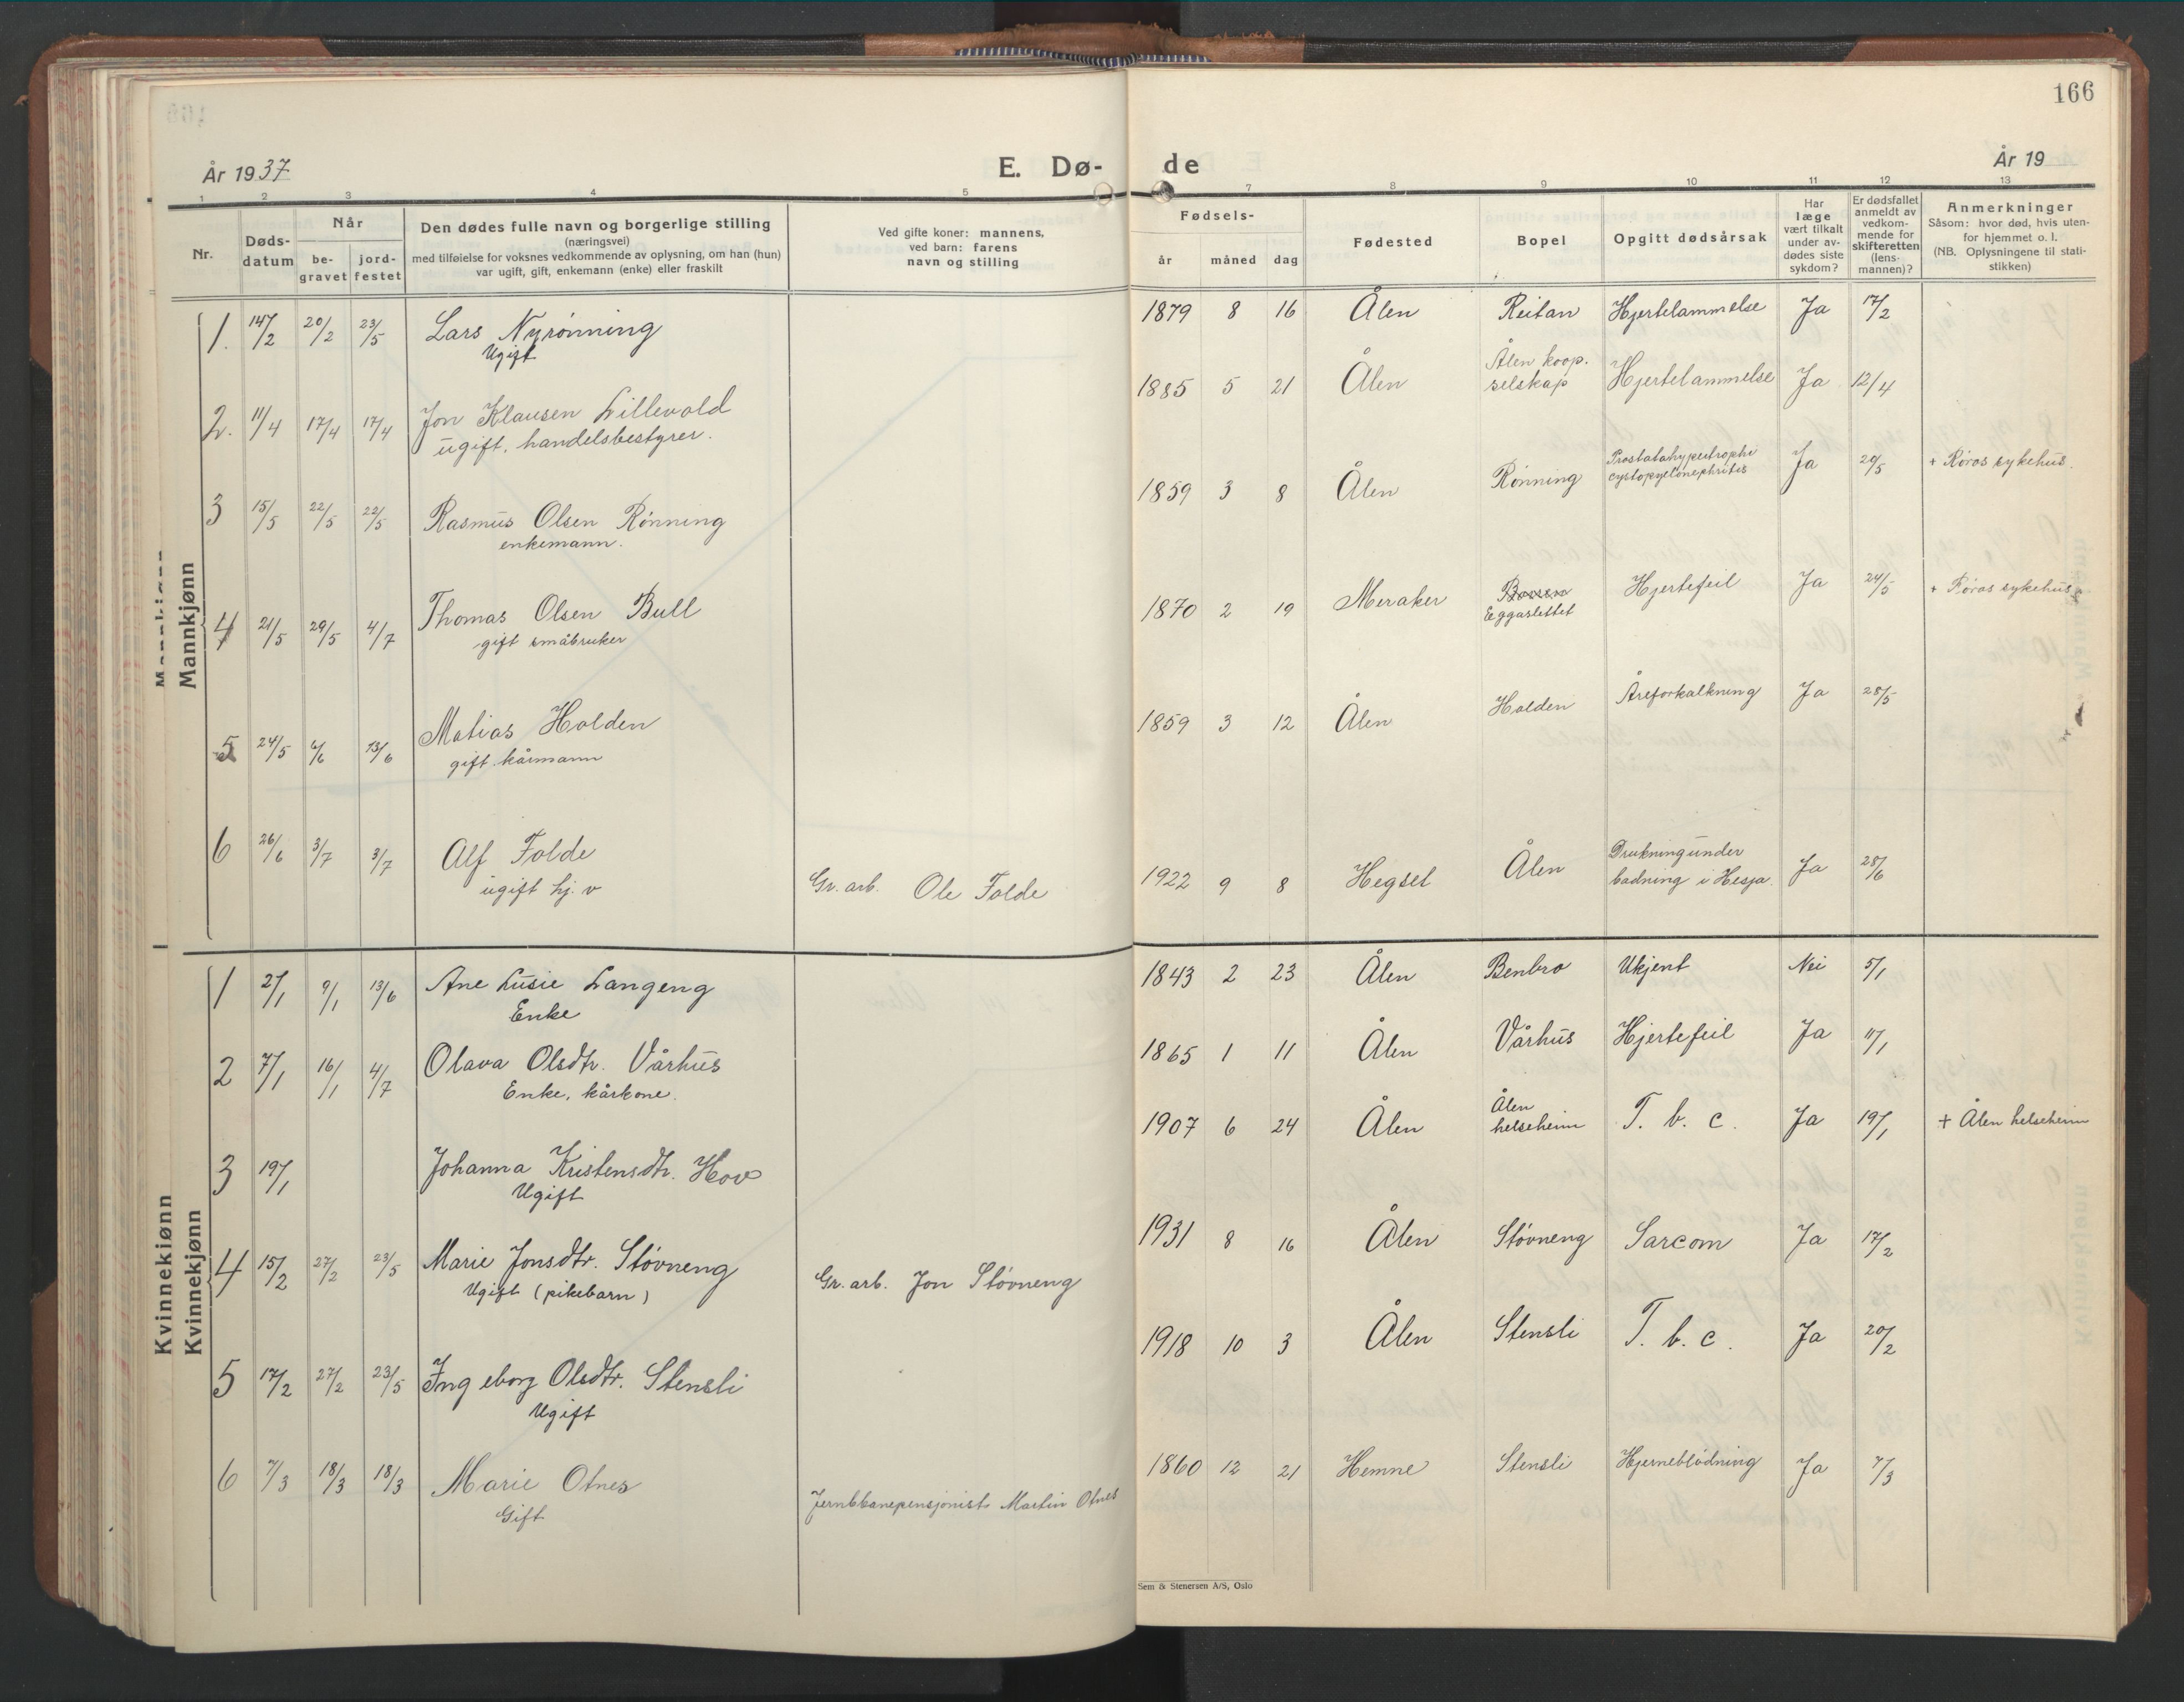 166
År 1937
E. Dø-
de
År 19
1 2 3 4 5 7 8 9 10 11 12 13
Nr.
Døds-
datum
Når
be-
gravet
jord-
festet
Den dødes fulle navn og borgerlige stilling
(næringsvei)
med tilføielse for voksnes vedkommende av oplysning, om han (hun)
var ugift, gift, enkemann (enke) eller fraskilt
Ved gifte koner: mannens,
ved barn: farens
navn og stilling
Fødsels-
år måned dag
Fødested
Bopel
Opgitt dødsårsak
Har
læge
vært tilkalt
under av-
dødes siste
sykdom?
Er dødsfallet
anmeldt av
vedkom-
mende for
skifteretten
(lens-
mannen)?
Anmerkninger
Såsom: hvor død, hvis uten-
for hjemmet o. l.
(NB. Oplysningene til stati-
stikken)
Mannkjønn
1. 14/2 20/2 23/5 Lars Nyrønning 1879 8 16 Ålen Reitan Hjertelammelse Ja 17/2
Ugift
2. 11/4 17/4 17/4 Jon Klausen Lillevold 1885 5 21 Ålen Ålen koop. selskap Hjertelammelse Ja 12/4
ugift, handelsbestyrer.
3 15/5 22/5 22/5 Rasmus Olsen Rønning 1859 3 8 Ålen Rønning Prostatahypertrophi cystopyelonephritis Ja 20/5 + Røros sykehus.
enkemann.
4 21/5 29/5 4/7 Thomas Olsen Bull 1870 2 19 Meraker Eggaslettet Hjertefeil Ja 24/5 + Røros sykehus
gift småbruker
5 24/5 /6 13/6 Matias Holden 1859 3 12 Ålen Holden Åreforkalkning Ja 28/5
gift. kårmann
6 26/6 3/7 3/7 Alf Folde Gr. arb. Ole Folde 1922 9 8 Hegset Ålen Drukning under badning i Hesja. Ja 28/6
ugift hj. v
Kvinnekjønn
Kvinnekjønn
1 2/1 9/1 13/6 Ane Lusie Langeng 1843 2 23 Ålen Benbro Ukjent Nei 5/1
Enke
2 7/1 16/1 4/7 Olava Olsdtr. Vårhus 1865 1 11 Ålen Vårhus Hjertefeil Ja 11/1
Enke, kårkone.
3 19/1 Johanna Kristensdtr. Hov 1907 6 24 Ålen Ålen helseheim T. b. c. Ja 19/1 + Ålen helseheim
Ugift
4 15/2 27/2 23/5 Marie Jonsdtr. Støvneng Gr. arb. Jon Støvneng 1931 8 16 Ålen Støvneng Sarcom Ja 17/2
Ugift (pikebarn)
5 17/2 27/2 23/5 Ingeborg Olsdtr. Stensli 1918 10 3 Ålen Stensli T. b. c. Ja 20/2
Ugift
6 7/3 18/3 18/3 Marie Otnes Jernbanepensjonist Martin Otnes 1860 12 21 Hemne Stensli Hjerneblødning Ja 7/3
Gift
Sem & Stenersen A/S, Oslo